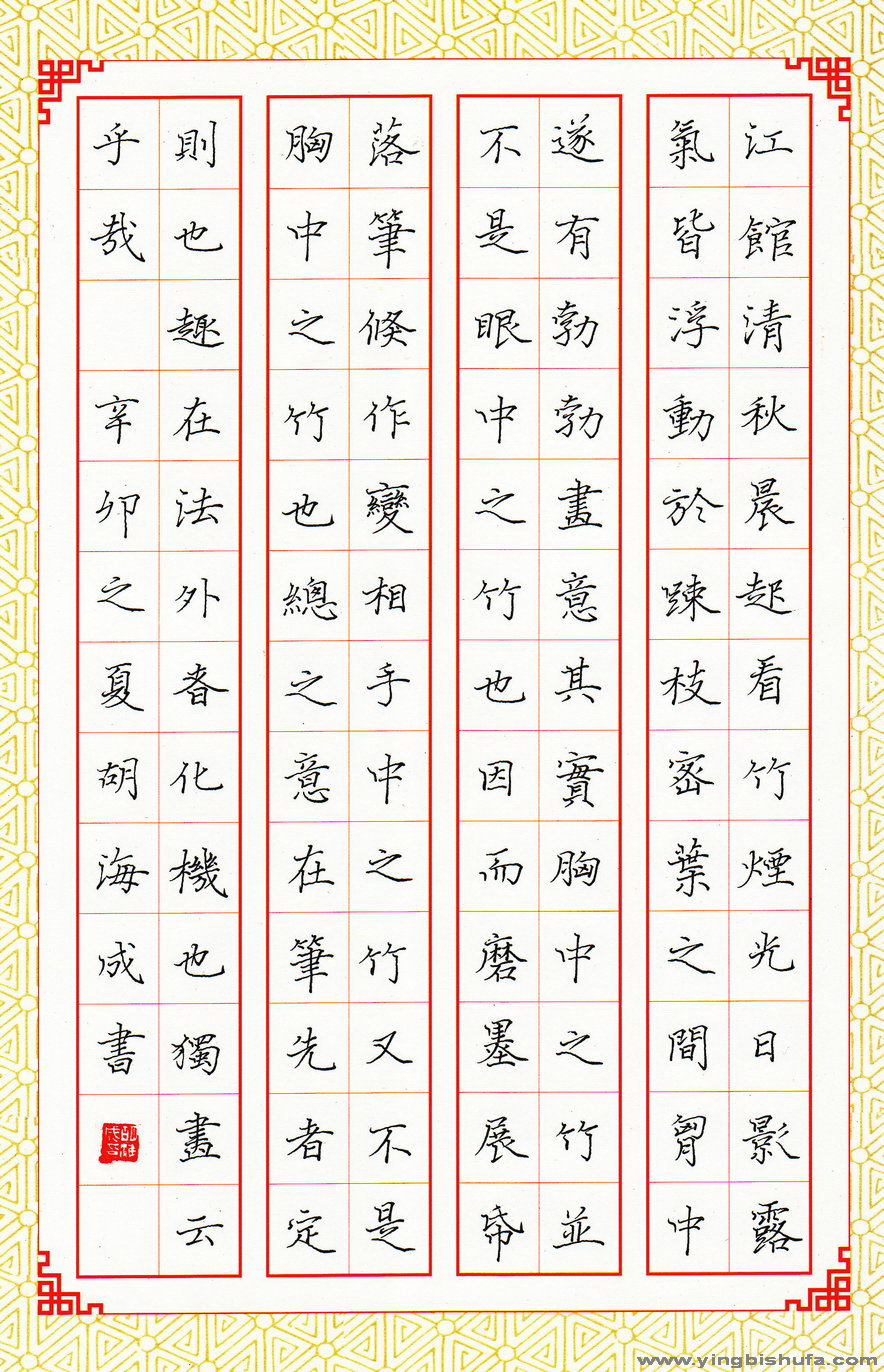 江館清秋晨起看竹煙光日影露
氣皆浮動於踈枝密葉之間胷中
遂有勃勃畫意其實胸中之竹並
不是眼中之竹也因而磨墨展帋
落筆倏作變相手中之竹又不是
胸中之竹也總之意在筆先者定
則也趣在法外者化機也獨畫云
乎哉 辛卯之夏胡海成書
www.yingbishufa.com